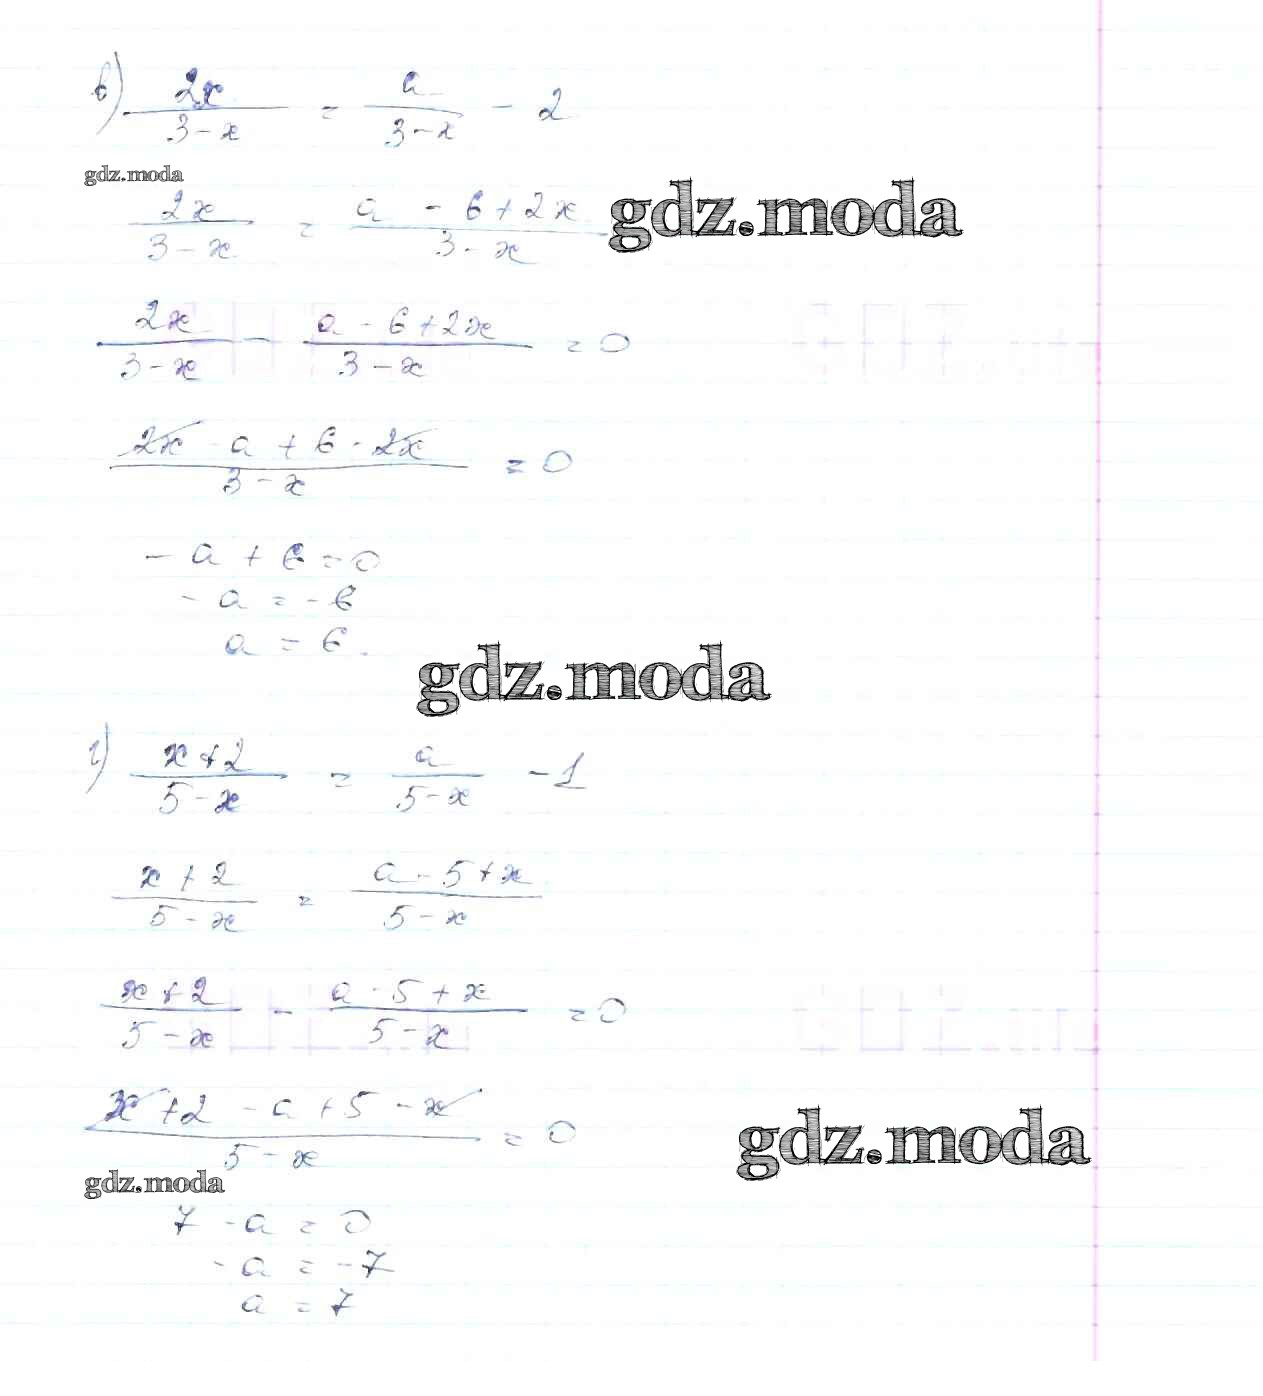 в) 2x/(3-x) = a/(3-x) - 2
gdz.moda
2x/(3-x) = (a - 6+2x)/(3-x)
gdz.moda
2x/(3-x) - (a-6+2x)/(3-x) = 0
(2x - a + 6 - 2x)/(3-x) = 0
- a + 6 = 0
- a = -6
a = 6.
gdz.moda
г) (x+2)/(5-x) = a/(5-x) - 1
(x+2)/(5-x) = (a-5+x)/(5-x)
(x+2)/(5-x) - (a-5+x)/(5-x) = 0
(x+2 - a+5-x)/(5-x) = 0
gdz.moda
gdz.moda
7 - a = 0
- a = -7
a = 7